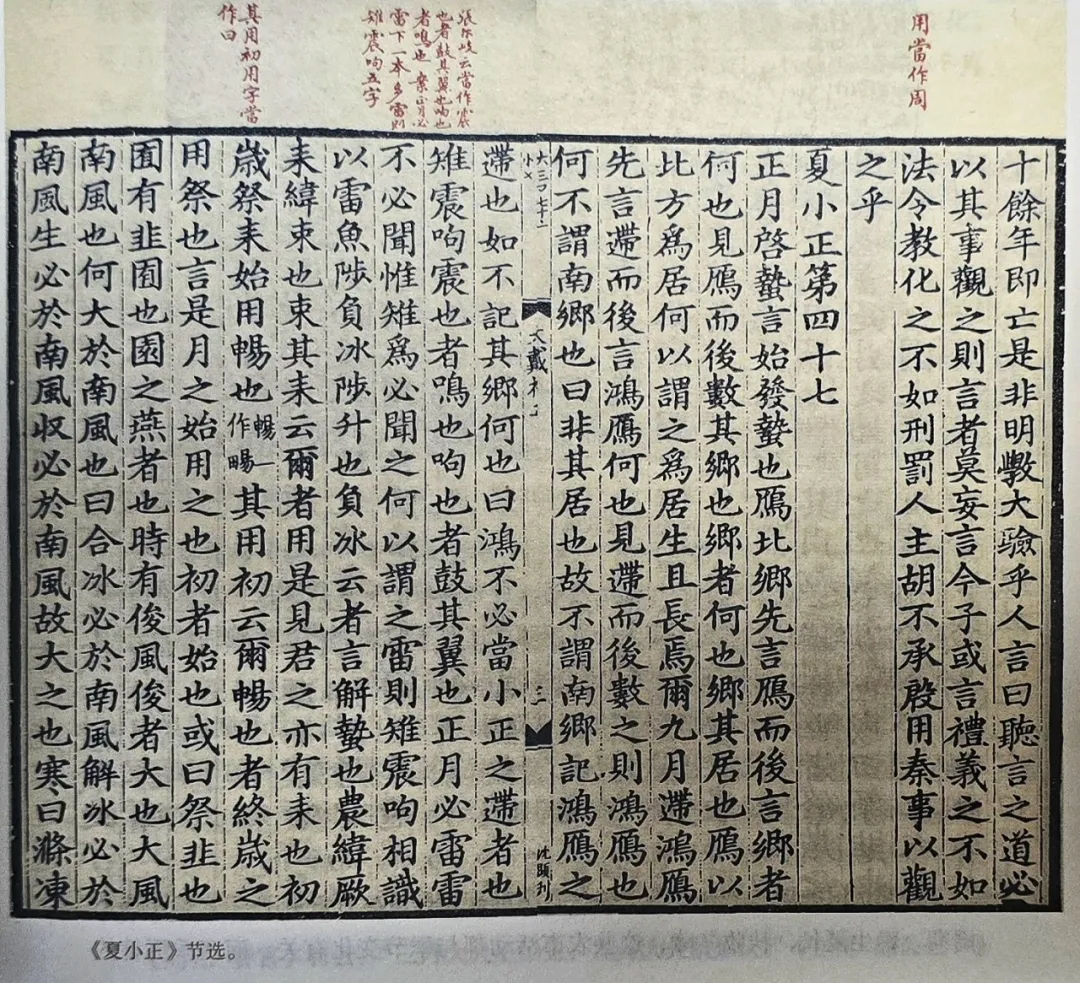 用當作周
張尔岐云當作震
也者鼓其翼也呴也
者鳴也案正月必
雷下一本多雷則
雉震呴五字
其用初用字當
作曰
十餘年即亡是非明斆大驗乎人言曰聽言之道必
以其事觀之則言者莫妄言今子或言禮義之不如
法令教化之不如刑罰人主胡不承殷用秦事以觀
之乎
夏小正第四十七
正月啓蟄言始發蟄也鴈北鄉先言鴈而後言鄉者
何也見鴈而後數其鄉也鄉者何也鄉其居也鴈以
北方爲居何以謂之爲居生且長焉爾九月遰鴻鴈
先言遰而後言鴻鴈何也見遰而後數之則鴻鴈也
何不謂南鄉也曰非其居也故不謂南鄉記鴻鴈之
大三百七十二
小×
大戴礼二
三
沈顯刋
遰也如不記其鄉何也曰鴻不必當小正之遰者也
雉震呴震也者鳴也呴也者鼓其翼也正月必雷雷
不必聞惟雉爲必聞之何以謂之雷則雉震呴相識
以雷魚陟負冰陟升也負冰云者言解蟄也農緯厥
耒緯束也束其耒云爾者用是見君之亦有耒也初
歲祭耒始用暢也暢一作畼其用初云爾暢也者終歲之
用祭也言是月之始用之也初者始也或曰祭韭也
囿有韭囿也園之燕者也時有俊風俊者大也大風
南風也何大於南風也曰合冰必於南風解冰必於
南風生必於南風収必於南風故大之也寒日滌凍
《夏小正》节选。